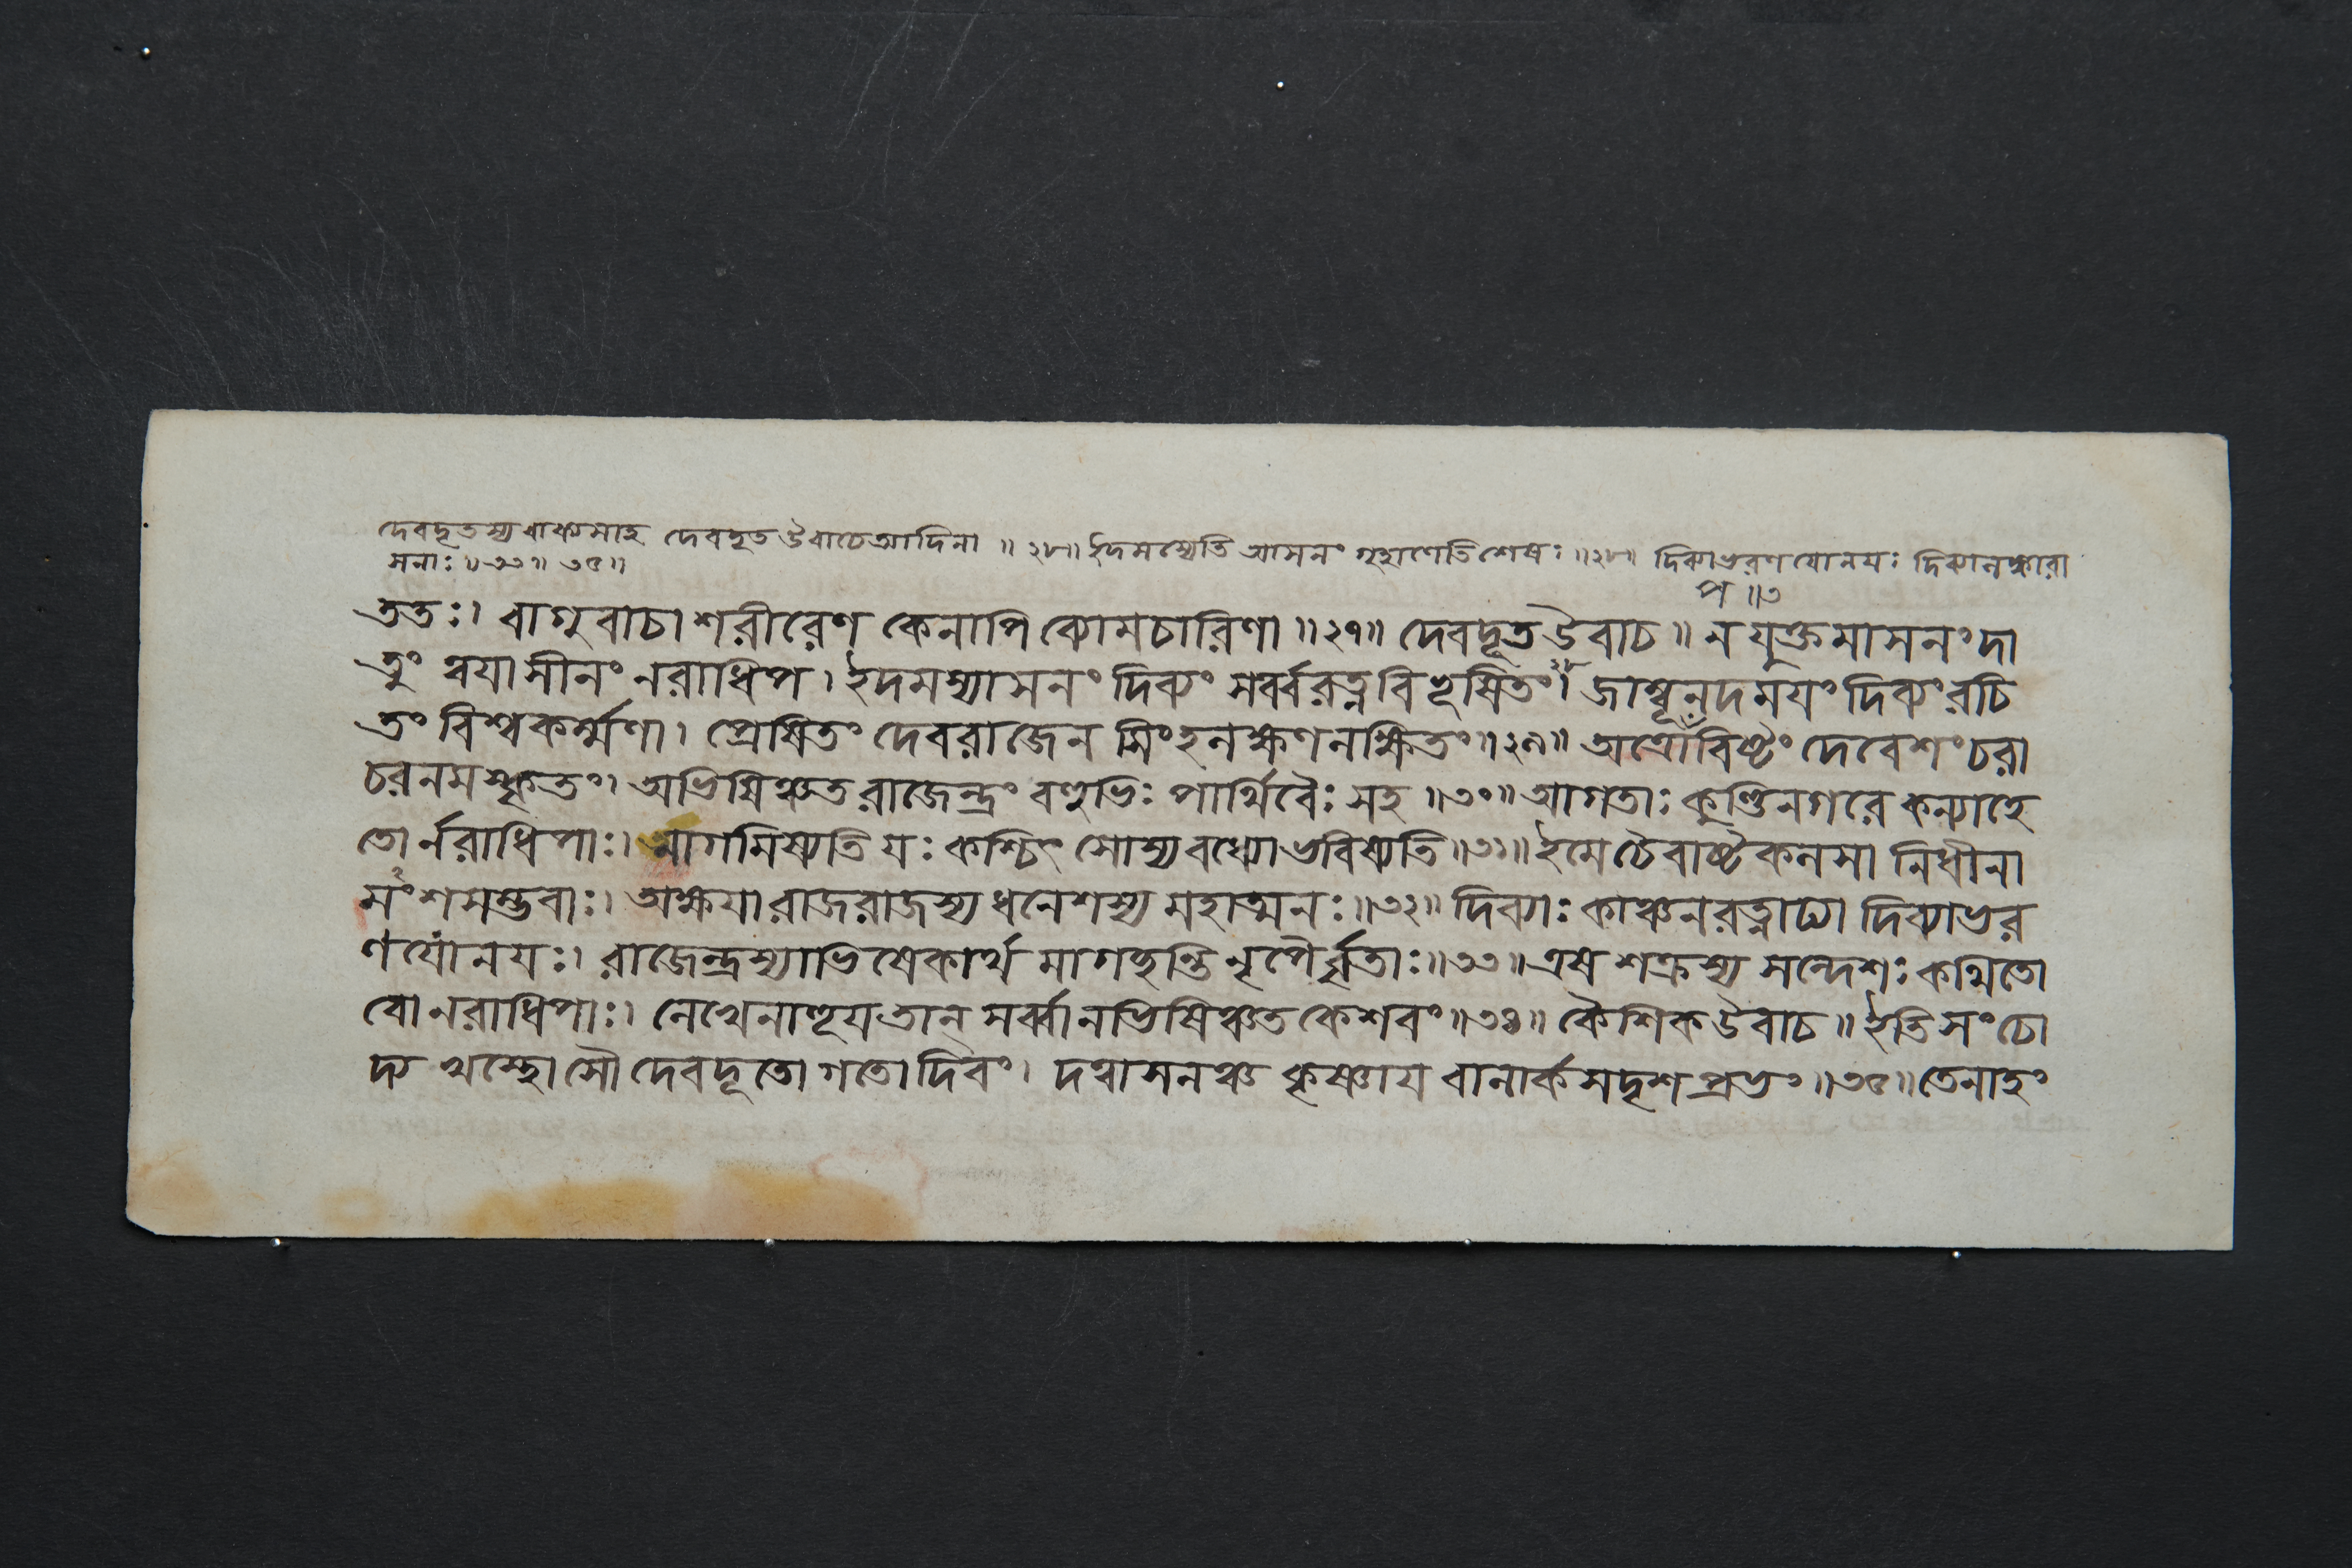 দেবদূতস্য বাক্যমাহ দেবদূত উবাচেআদিনা ॥ ২৮॥ ইদমস্যেতি আসনং গৃহাণেতি শেষঃ ॥২৮॥ দিব্যাভরণযোনযঃ দিব্যানঙ্কারা
সনাঃ ॥ ৩৩॥ ৩৫॥
প ॥৩
ততঃ। বাগুবাচা শরীরেণ কেনাপি ব্যোমচারিণা ॥২৭॥ দেবদূত উবাচ ॥ ন যুক্তমাসনং দা
তুং ত্বযাসীনং নরাধিপ। ইদমস্যাসনং দিব্যং সর্ব্বরত্নবিভূষিতং।২৮ জাম্বূনদমযং দিব্যং রচি
তং বিশ্বকর্ম্মণা। প্রেষিতং দেবরাজেন সিংহলক্ষণলক্ষিতং॥২৯॥ অত্রোপবিষ্টং দেবেশং চরা
চরনমস্কৃতং। অভিষিঞ্চত রাজেন্দ্রং বহুভিঃ পার্থিবৈঃ সহ ॥৩০॥ আগতাঃ কুণ্ডিনগরে কন্যাহে
তোর্নরাধিপাঃ। নাগমিষ্যতি যঃ কশ্চিৎ সোস্য বধ্যো ভবিষ্যতি ॥৩১॥ ইমে চৈবাষ্টকলসা নিধীনা
মংশসম্ভবাঃ। অক্ষযা রাজরাজস্য ধনেশস্য মহাত্মনঃ ॥৩২॥ দিব্যাঃ কাঞ্চনরত্নাঢ্যা দিব্যাভর
ণযোনযঃ। রাজেন্দ্রস্যাভিষেকার্থ মাগচ্ছন্তি নৃপৈর্বৃতাঃ ॥৩৩॥ এষ শক্রস্য সন্দেশঃ কথিতো
বো নরাধিপাঃ। লেখেনাহূয তান্ সর্ব্বানভিষিঞ্চত কেশবং ॥৩৪॥ কৈশিক উবাচ ॥ ইতি সংচো
দ্য খস্থোসৌ দেবদূতো গতো দিবং। দত্বাসনঞ্চ কৃষ্ণায বালার্কসদৃশপ্রভং ॥৩৫॥ তেনাহং